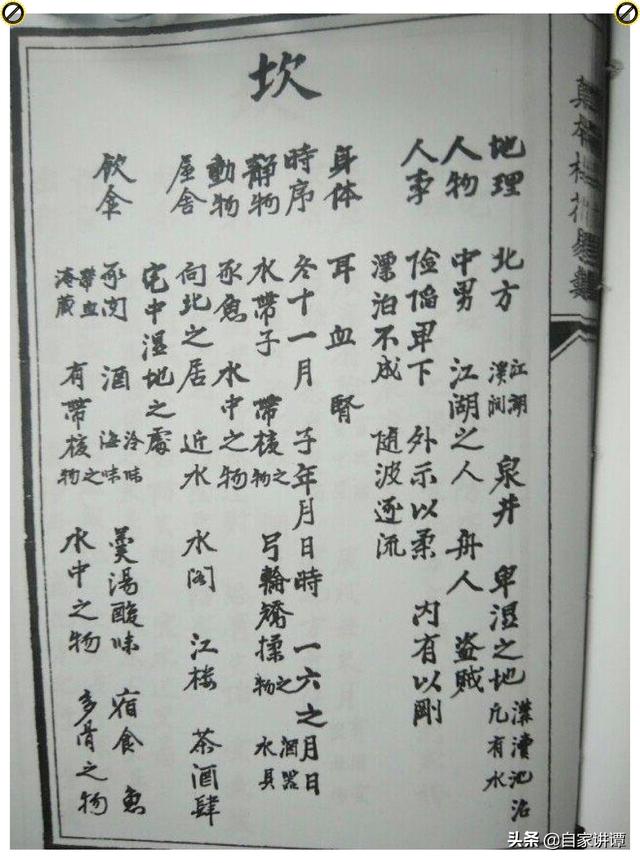 坎
地理 北方 江湖 溪澗 泉井 卑湿之地 溝瀆池沼 凡有水
人物 中男 江湖之人 舟人 盗贼
人事 俭陷卑下 外示以柔 内有以剛
漂泊不成 随波逐流
身体 耳 血 腎
時序 冬十一月 子年月日時 一六之月日
靜物 水帶子 帶核之物 弓輪矯揉之物 酒器 水具
動物 豕魚 水中之物
屋舍 向北之居 近水 水阁 江楼 茶酒肆
宅中湿地之處
飲食 豕肉 酒 冷味 海味 羹湯酸味 宿食 魚
帶血 淹藏 有帶核之物 水中之物 多骨之物
头条 @自家讲谭